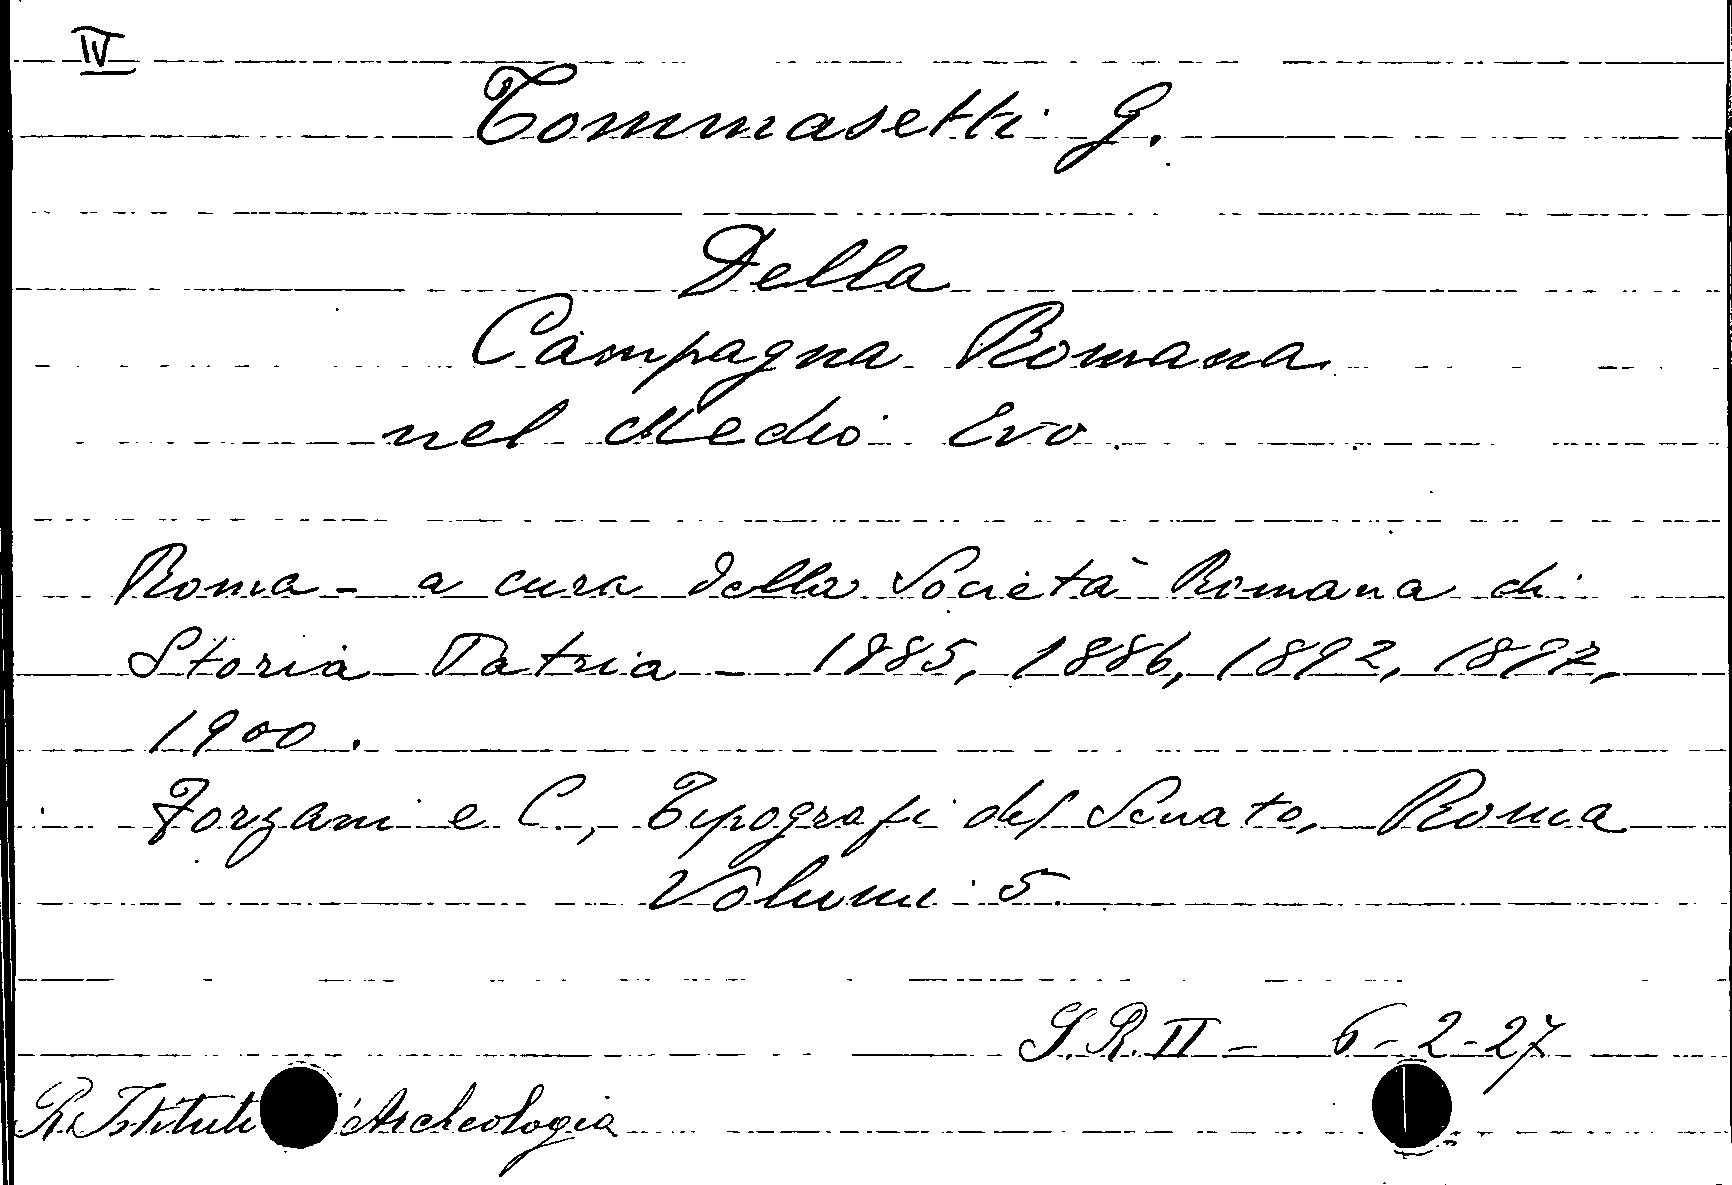 IV
Tommasetti G.
Della
Campagna Romana
nel Medio Evo
Roma - a cura della Società Romana di
Storia Patria - 1885, 1886, 1892, 1897,
1900.
Forzani e C., Tipografi del Senato, Roma
Volumi 5.
S.R. II - 6-2-27
R. Istituto Archeologia